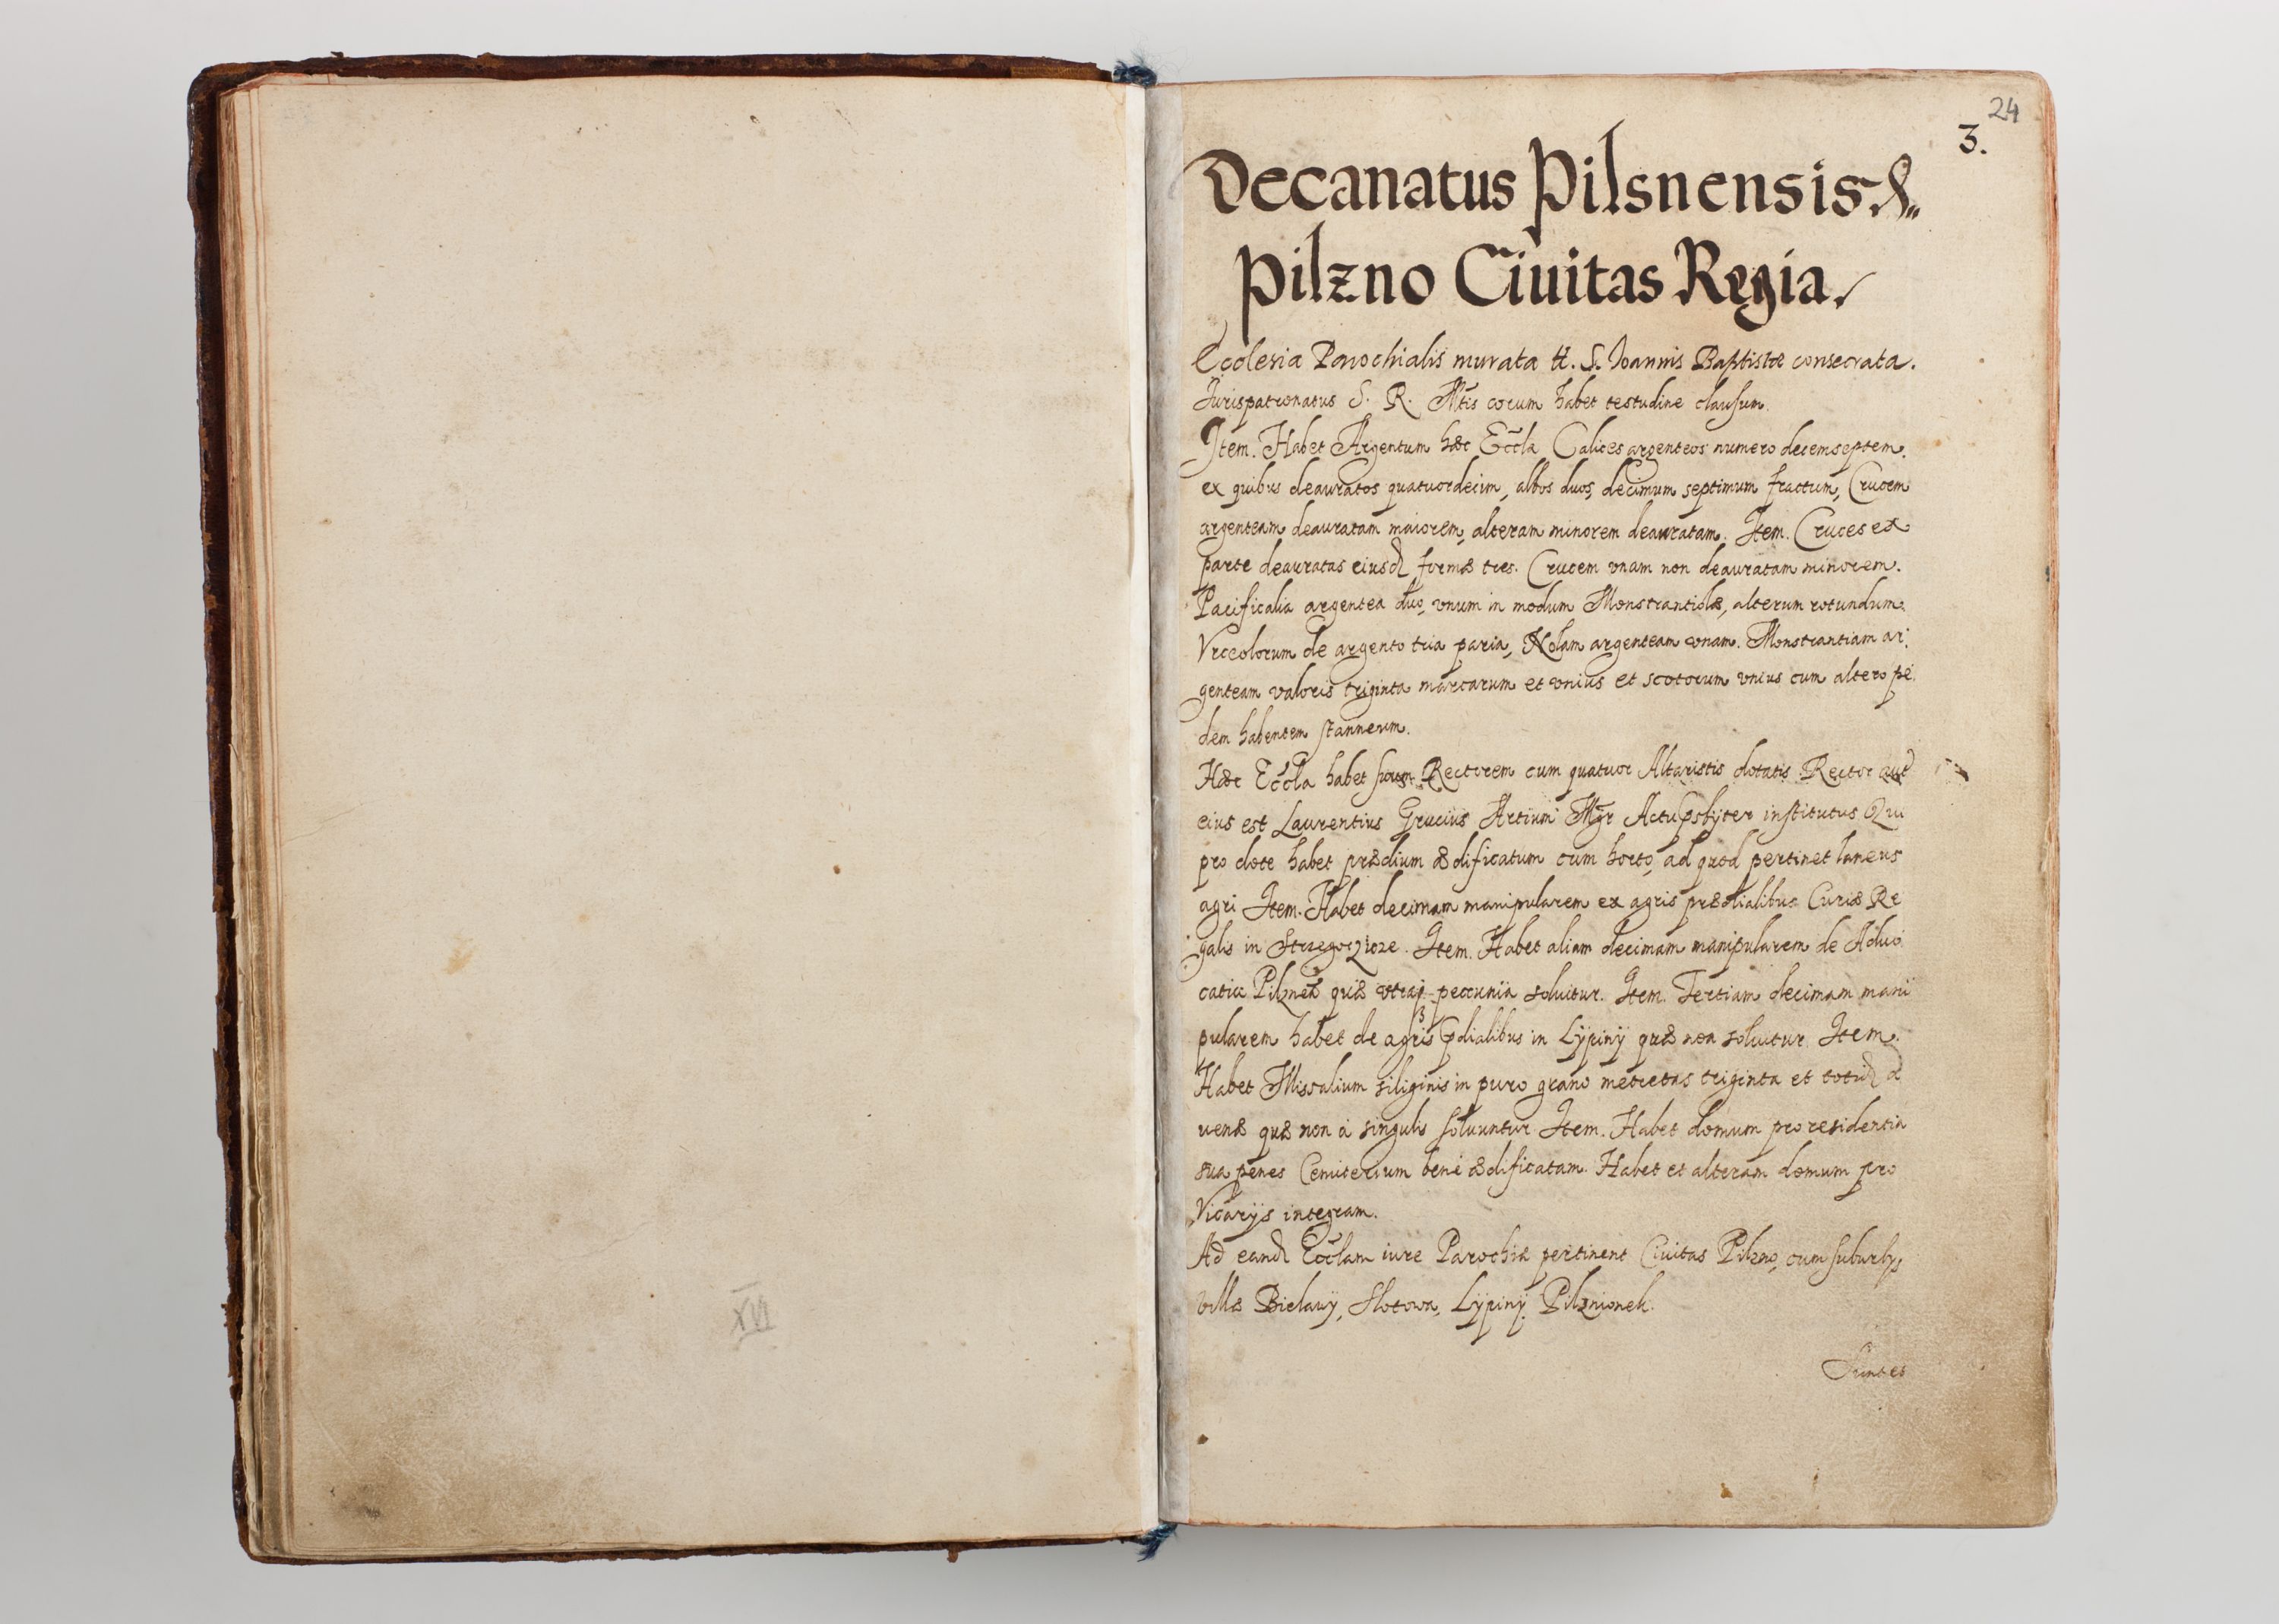 XVI
24
3.
Decanatus Pilsnensis
Pilzno Ciuitas Regia
Ecclesia Parochialis murata tt. S. Ioannis Baptistæ consecrata.
Jurispatronatus S. R. Mtis corum habet testudine clausum
Item. Habet Argentum hæc Eccla Calices argenteos numero decemseptem.
ex quibus deauratos quatuordecim, albos duos, decimum septimum fractum, Crucem
argenteam deauratam maiorem, alteram minorem deauratam. Item. Cruces ex
parte deauratas eiusd formæ tres. Crucem vnam non deauratam minorem.
Pacificalia argentea duo, vnum in modum Monstrantiolæ, alterum rotundum.
Vrceolorum de argento tria paria, Nolam argenteam vnam. Monstrantiam ar
genteam valoris triginta marcarum et vnius et scotorum vnius cum altero pe
dem habentem stanneum.
Hæc Eccla habet suum Rectorem cum quatuor Altaristis dotatis Rector aut
eius est Laurentius Grucius Artium Mgr Actu psbyter institutus Qui
pro dote habet prædium ædificatum cum horto, ad quod pertinet laneus
agri Item. Habet decimam manipularem ex agris prædialibus Curiæ Re
galis in Item. Habet aliam decimam manipularem de Aduo
catia Pilznen quæ pecunia soluitur. Item. Tertiam decimam mani
pularem habet de agris pdialibus in Lypiny quæ non soluitur. Item.
Habet Missalium siliginis in puro grano metretas triginta et totid a
uenæ quæ non à singulis soluuntur Item. Habet domum pro residentia
sua penes Cemiterium bene ædificatam. Habet et alteram domum pro
Vicarijs integram.
Ad eand Ecclam iure Parochiæ pertinent Ciuitas Pilzno, cum suburbijs
villæ Bielawy, Slotowa, Lypiny, Pilznionek.
Sunt et